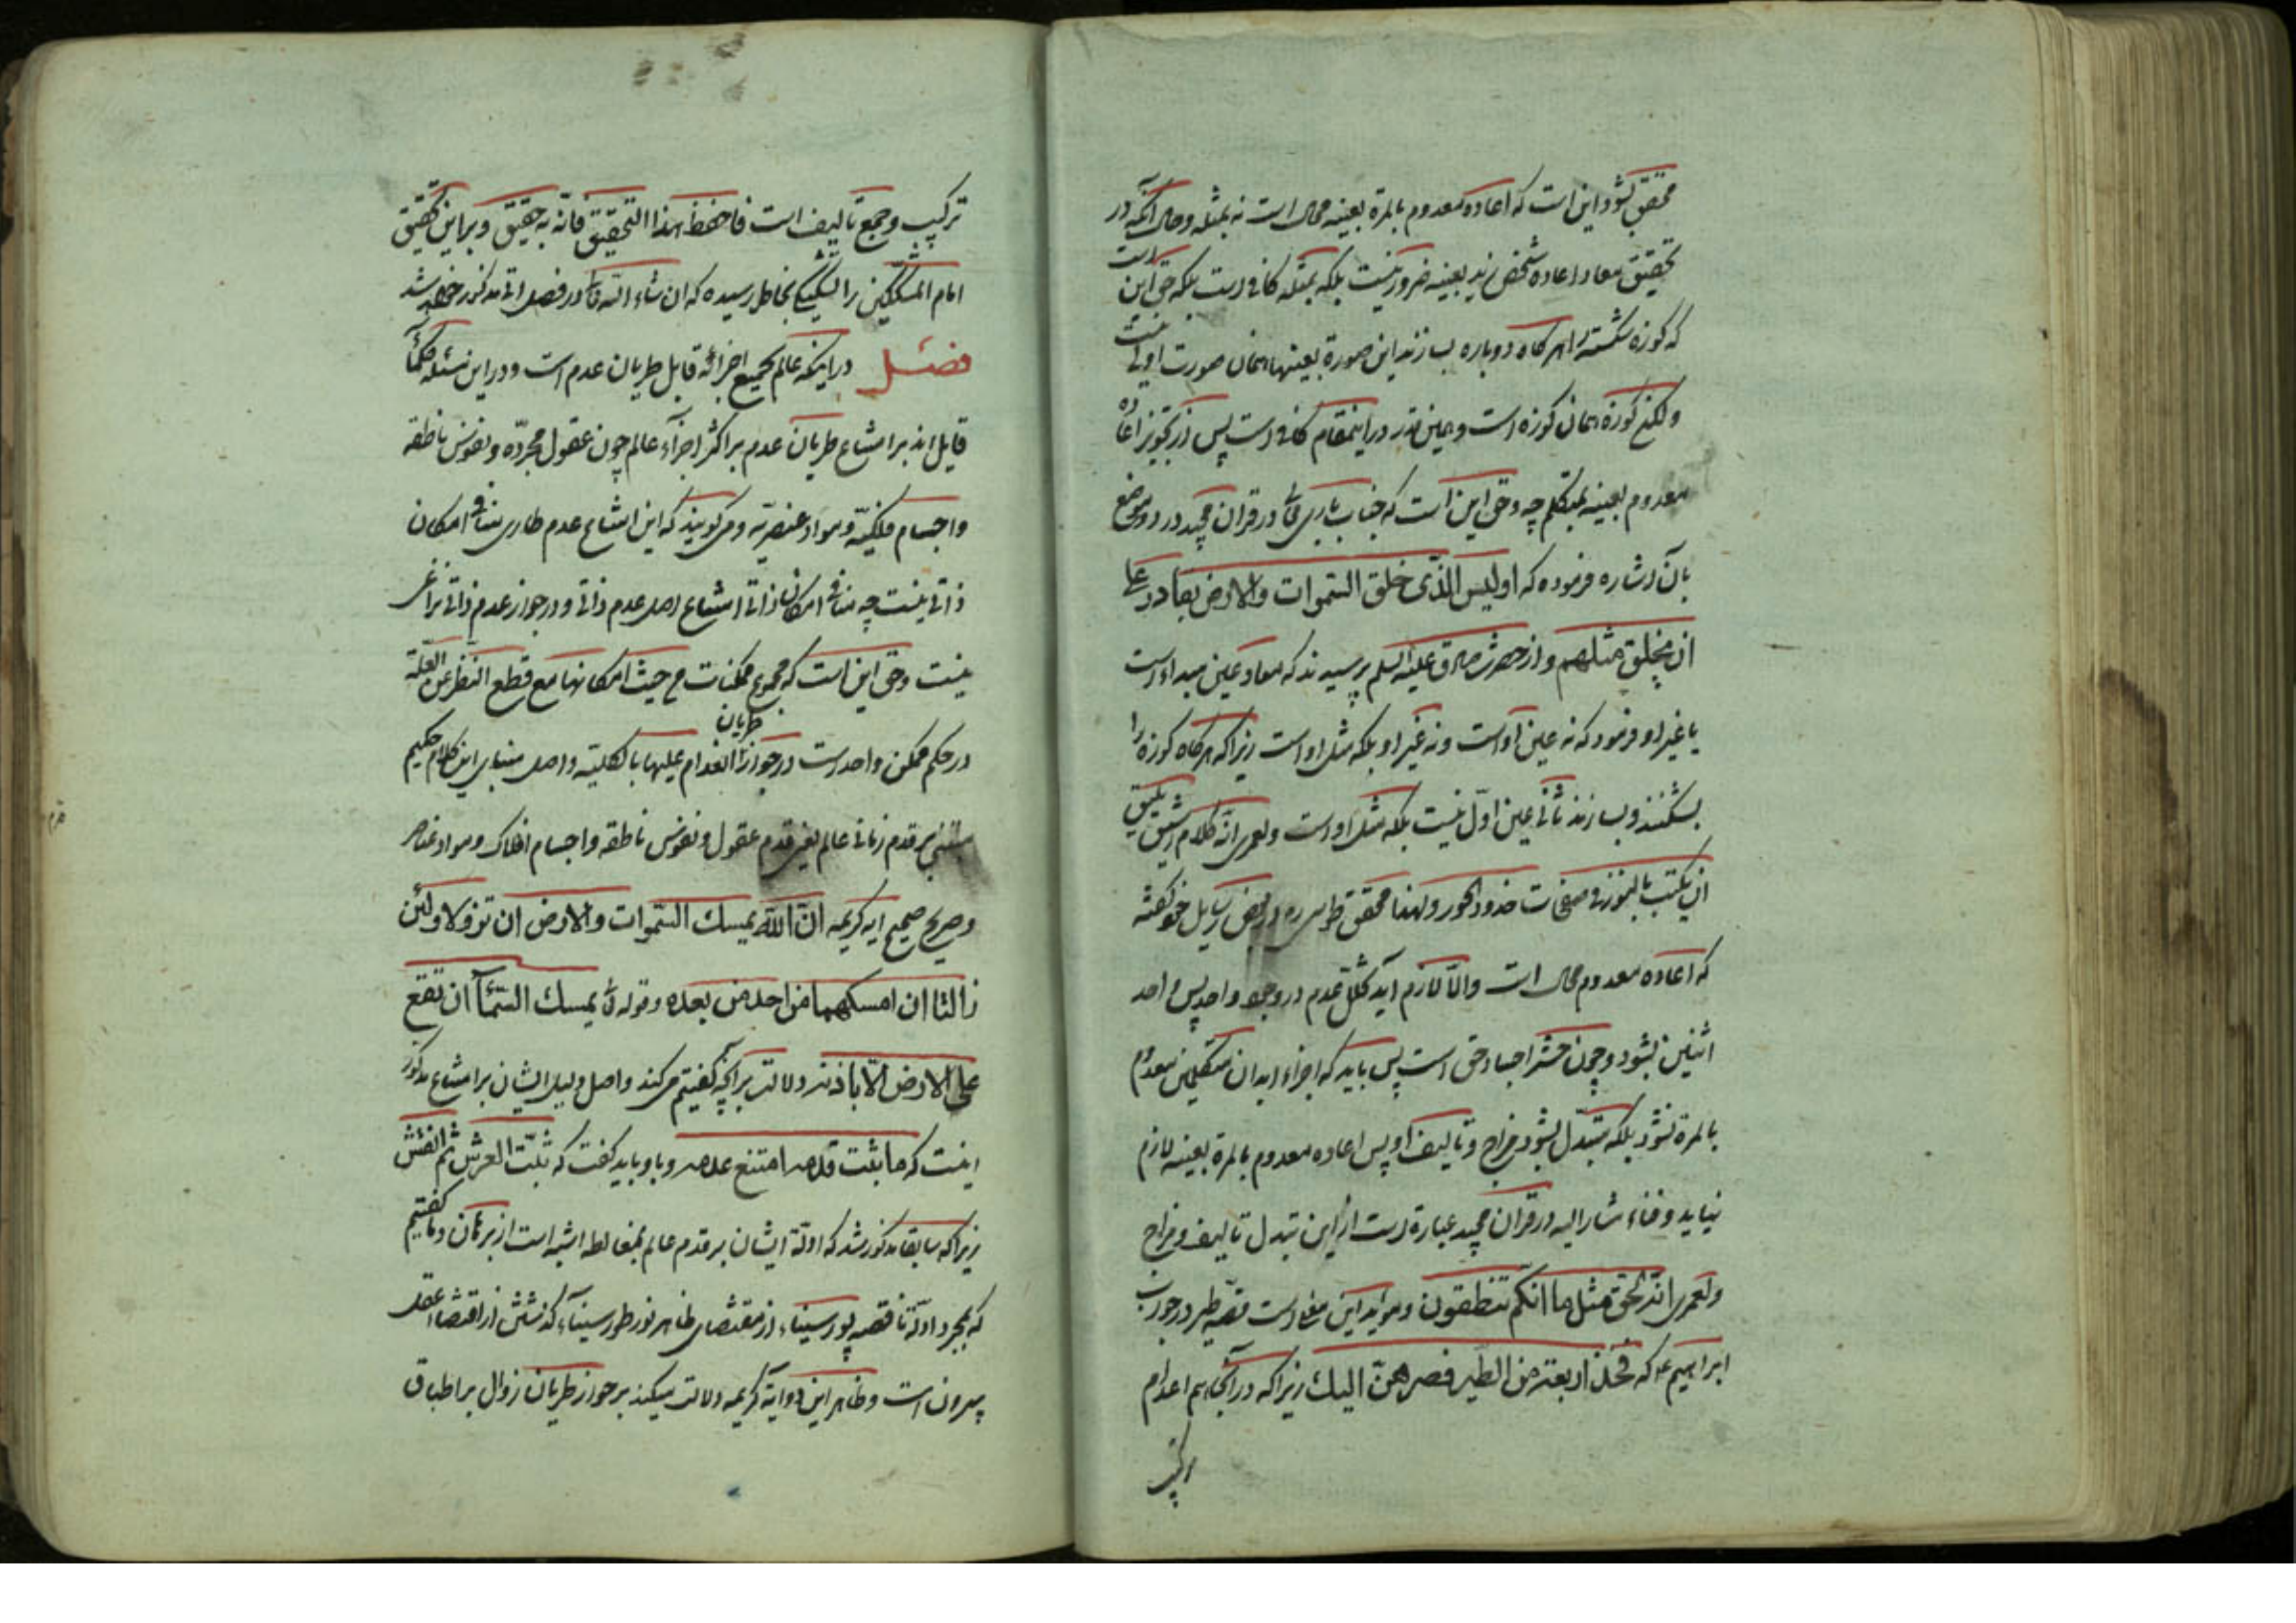 محقق نشود این است که اعاده معدوم بالمرة بعینه محال است نه بمثله و حال آنکه در
تحقیق معاد اعاده شخص زید بعینه ضرور نیست بلکه بمثله کافی است بلکه حق این است
که کوزه شکسته را هرکاه دوباره بسازند این صورة بعینها همان صورت اولی نیست
ولکن کوزه همان کوزه است و همین قدر در اینمقام کافی است پس از تجویز اعاده
معدوم بعینه بمتکلم چه و حق این است که جناب باری تعالی در قران مجید در دو موضع
بآن اشاره فرموده که اولیس الذی خلق السموات والارض بقادر علی
ان یخلق مثلهم و از حضرت صادق علیه السلم پرسیدند که معاد عین مبداء است
یا غیر او فرمود که نه عین او است و نه غیر او بلکه مثل او است زیرا که هرکاه کوزه را
بشکنند و بسازند ثانی عین اول نیست بلکه مثل او است ولعمری انه کلام رشیق یلیق
ان یکتب بالنور فی صفحات خدود الحور ولهذا محقق طوسی ره در بعض رسایل خود کفته
که اعاده معدوم محال است والا لازم آید تخلل عدم در وجود واحد پس واحد
اثنین بشود و چون حشر اجساد حق است پس باید که اجزاء ابدان مکلفین معدوم
بالمرة نشود بلکه متبدل بشود مزاج و تالیف او پس اعاده معدوم بالمرة بعینه لازم
نیاید و فناء مشار الیه در قران مجید عبارة است از این تبدل تالیف و مزاج
ولعمری انه لحق مثل ما انکم تنطقون و موید این معنی است قصه طیر در جواب
ابراهیم ع که فخذ اربعة من الطیر فصرهن الیک زیرا که در آنجا هم اعدام
ترکیب
ترکیب و جمع تالیف است فاحفظ هذا التحقیق فانه به حقیق و بر این تحقیق
امام المشککین را تشکیکی بخاطر رسیده که ان شاء الله تعالی در فصل اتی مذکور خواهد شد
فصل در اینکه عالم بجمیع اجزائه قابل طریان عدم است و در این مسئله حکمآ
قایل اند بر امتناع طریان عدم بر اکثر اجزآء عالم چون عقول مجرده و نفوس ناطقه
و اجسام فلکیه و مواد عنصریه و می کویند که این امتناع عدم طاری منافی امکان
ذاتی نیست چه منافی امکان ذاتی امتناع اصل عدم ذاتی و در جواز عدم ذاتی نزاعی
نیست و حق این است که مجموع ممکنات من حیث امکانها مع قطع النظر عن العلة
در حکم ممکن واحد است در جواز طریان انعدام علیها بالکلیه و اصل مبنای این کلام حکیم
مبتنی بر قدم زمانی عالم یعنی قدم عقول و نفوس ناطقه و اجسام افلاک و مواد عناصر
و صریح صحیح ایه کریمه ان الله یمسک السموات والارض ان تزولا ولئن
زالتا ان امسکهما من احد من بعده و قوله تعالی یمسک السمآء ان تقع
علی الارض الا باذنه دلالت بر آنچه کفتیم می کند و اصل دلیل ایشان بر امتناع مذکور
اینست که ما ثبت قدمه امتنع عدمه و با و باید کفت که ثبت العرش ثم انقش
زیرا که سابقا مذکور شد که ادلة ایشان بر قدم عالم بمغالطه اشبه است از برهان و ما کفتیم
که بمجرد ادلة ناقصه پور سیناء از مقتضای ظاهر نور طور سیناء کذشتن از اقتضاء عقل
بیرون است و ظاهر این دو ایه کریمه دلالت میکند بر جواز طریان زوال بر اطباق